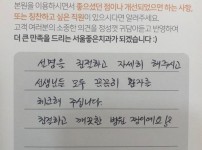 본원을 이용하시면서 좋으셨던 점이나 개선되었으면 하는 사항,
또는 칭찬하고 싶은 직원이 있으시다면 말려주세요.
고객 여러분의 소중한 의견을 정성껏 귀담아듣고 반영하여
더 큰 만족을 드리는 서울좋은치과가 되겠습니다 :)
설명은 친절하고 자세히 해주시고
선생님들 모두 꼼꼼히 환자를
체크해 주십니다.
친절하고 깨끗한 병원 정이예요!!